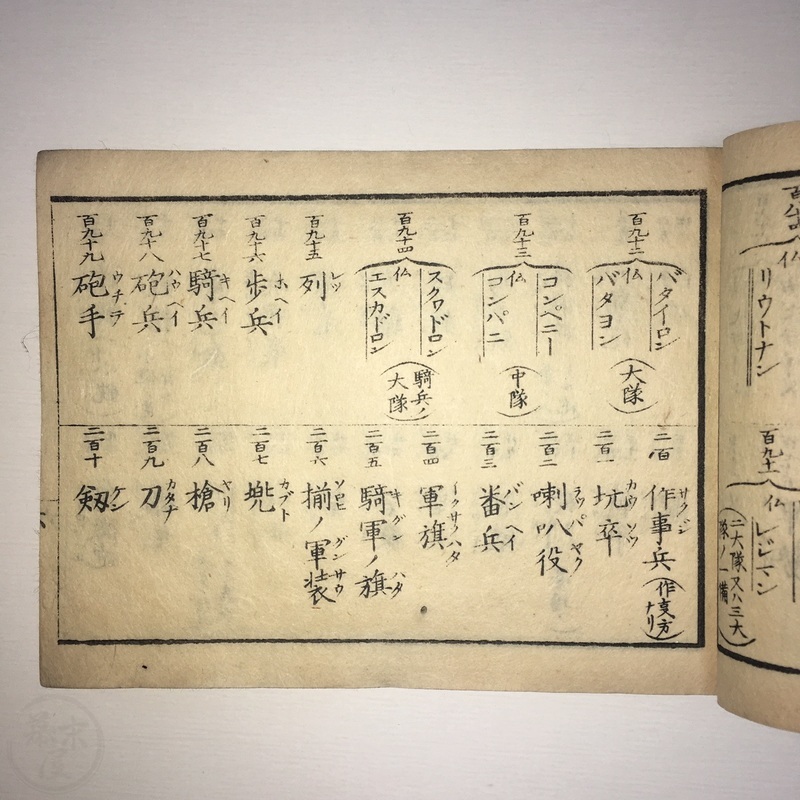 百九十二
バタイロン
仏
バタヨン
(大隊)
百九十三
コンペニー
仏
コンパニ
(中隊)
百九十四
スクワドロン
仏
エスカドロン
(騎兵ノ大隊)
百九十五
列 レツ
百九十六
歩兵 ホヘイ
百九十七
騎兵 キヘイ
百九十八
砲兵 ハウヘイ
百九十九
砲手 ウチテ
二百
作事兵 サクジ
(作支方ナリ)
二百一
坑卒 カウソツ
二百二
喇叭役 ラツパヤク
二百三
番兵 バンヘイ
二百四
軍旗 イクサノハタ
二百五
騎軍ノ旗 キグン ハタ
二百六
揃ノ軍装 ソロヒ グンサウ
二百七
兜 カブト
二百八
槍 ヤリ
二百九
刀 カタナ
二百十
剱 ケン
仏
リウトナン
百九十一
仏
レジマン
(二大隊又ハ三大隊ノ一備